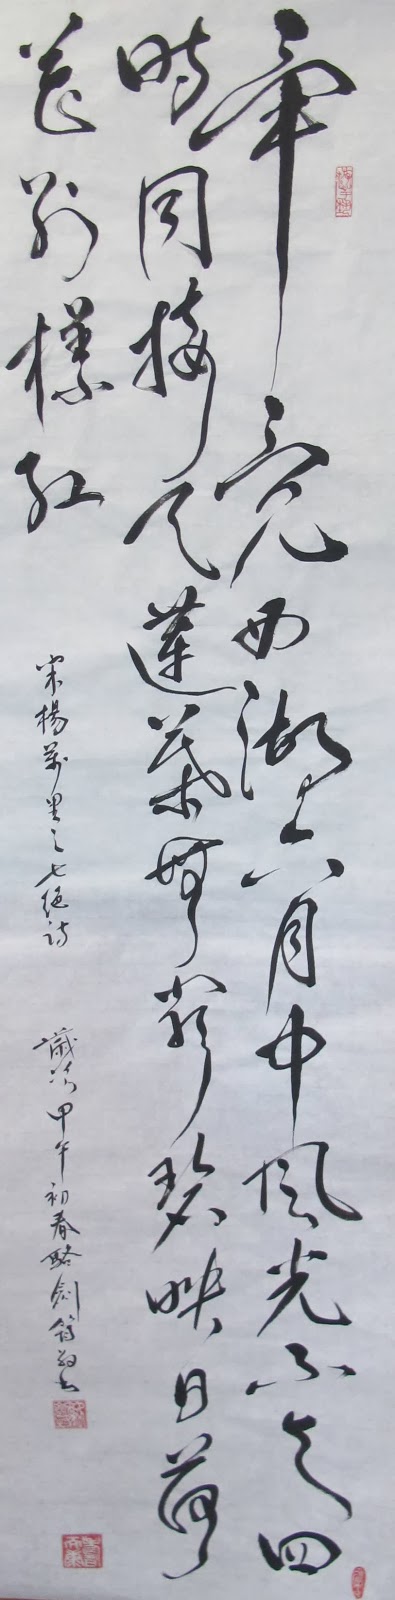 畢竟西湖六月中風光不與四
時同接天蓮葉無窮碧映日荷
花別樣紅
宋楊萬里之七絕詩
歲次甲午初春駱劍書